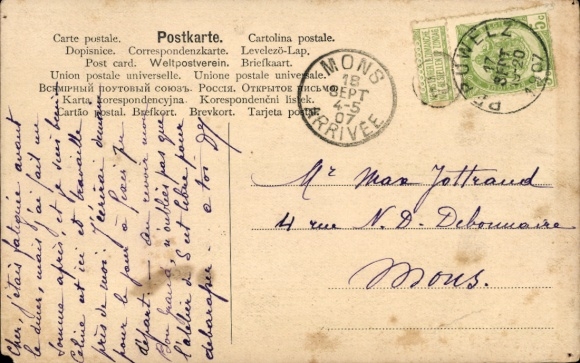 Carte postale. Postkarte. Cartolina postale.
Dopisnice. Correspondenzkarte. Levelező-Lap.
Post card. Weltpostverein. Briefkaart.
Union postale universelle. Unione postale universale.
Всемірный почтовый союзъ. Россія. Открытое письмо.
Karta korespondencyjna. Korespondenční lístek.
Cartão postal. Brefkort. Brevkort. Tarjeta postal.
MONS
18
SEPT
4-5
07
ARRIVÉE
PERUWELZ
17
SEPT
1907
Mr Max Jottrand
4 rue N. D. Debonnaire
Mons.
Cher, j'étais fatiguée avant
le diner, mais j'ai fait un
somme après, et je suis bien
Céline est ici et travaille
près de moi. J'écrirai demain
pour le jour à l'
départ. — au revoir mon
bon n'oublies pas que
l'atelier de S est libre pour
— à toi